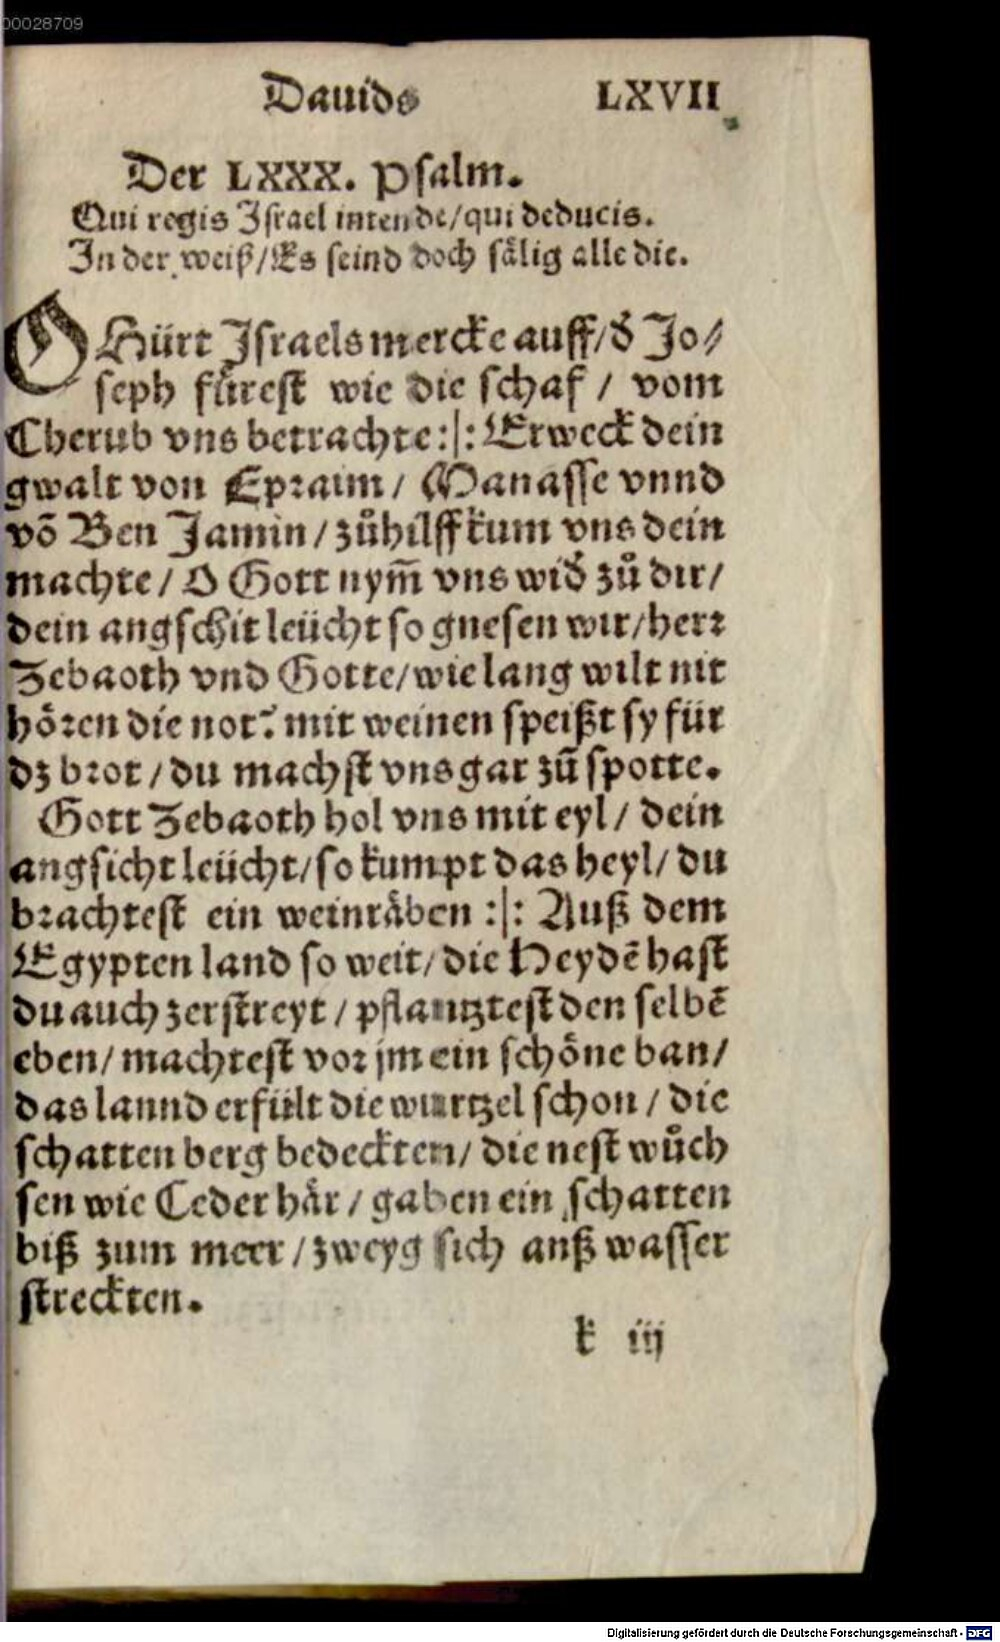 00028709
Dauids LXVII
Der LXXX. Psalm.
Qui regis Israel intende/qui deducis.
In der weiß/Es seind doch sälig alle die.
O Hürt Israels mercke auff/d̄ Jo⸗
seph fürest wie die schaf / vom
Cherub vns betrachte :|: Erweck dein
gwalt von Epraim / Manasse vnnd
vō Ben Jamin / zůhilff kum vns dein
machte / O Gott nym̄ vns wid̄ zů dir/
dein angschit leücht so gnesen wir/herr
Zebaoth vnd Gotte/wie lang wilt nit
hören die not? mit weinen speißt sy für
dz brot / du machst vns gar zū spotte.
Gott Zebaoth hol vns mit eyl / dein
angsicht leücht/so kumpt das heyl/ du
brachtest ein weinräben :|: Auß dem
Egypten land so weit/die Heydē hast
du auch zerstreyt / pflantztest den selbē
eben/ machtest vor jm ein schöne ban/
das lannd erfült die wurtzel schon / die
schatten berg bedeckten/ die nest wůch
sen wie Ceder här / gaben ein schatten
biß zum meer / zweyg sich anß wasser
streckten.
k iij
Digitalisierung gefördert durch die Deutsche Forschungsgemeinschaft - DFG